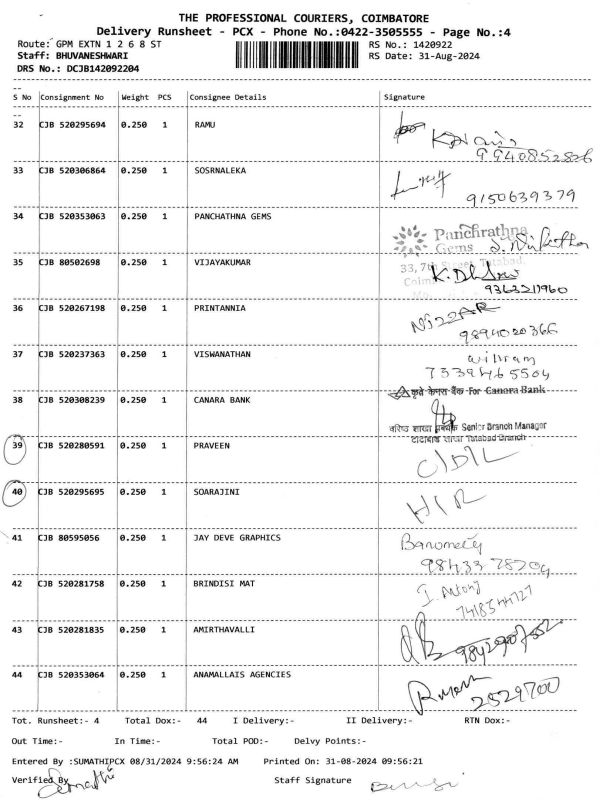 THE PROFESSIONAL COURIERS, COIMBATORE
Delivery Runsheet - PCX - Phone No.:0422-3505555 - Page No.:4
Route: GPM EXTN 1 2 6 8 ST
RS No.: 1420922
Staff: BHUVANESHWARI
RS Date: 31-Aug-2024
DRS No.: DCJB142092204
S No Consignment No Weight PCS Consignee Details Signature
32 CJB 520295694 0.250 1 RAMU
9940852826
33 CJB 520306864 0.250 1 SOSRNALEKA
9150639379
34 CJB 520353063 0.250 1 PANCHATHNA GEMS
Panchrathna
Gems
35 CJB 80502698 0.250 1 VIJAYAKUMAR
33, 7th Street, Tatabad,
9363211960
36 CJB 520267198 0.250 1 PRINTANNIA
NIZZAR
9894020366
37 CJB 520237363 0.250 1 VISWANATHAN
7339465504
38 CJB 520308239 0.250 1 CANARA BANK
कृते केनरा बैंक For Canara Bank
वरिष्ठ शाखा प्रबंधक Senior Branch Manager
Tatabad Branch
39 CJB 520280591 0.250 1 PRAVEEN
C/D/L
40 CJB 520295695 0.250 1 SOARAJINI
H/R
41 CJB 80595056 0.250 1 JAY DEVE GRAPHICS
98433 78204
42 CJB 520281758 0.250 1 BRINDISI MAT
I. Antony
7418544727
43 CJB 520281835 0.250 1 AMIRTHAVALLI
44 CJB 520353064 0.250 1 ANAMALLAIS AGENCIES
2529700
Tot. Runsheet:- 4 Total Dox:- 44 I Delivery:- II Delivery:- RTN Dox:-
Out Time:- In Time:- Total POD:- Delvy Points:-
Entered By :SUMATHIPCX 08/31/2024 9:56:24 AM Printed On: 31-08-2024 09:56:21
Verified By Staff Signature